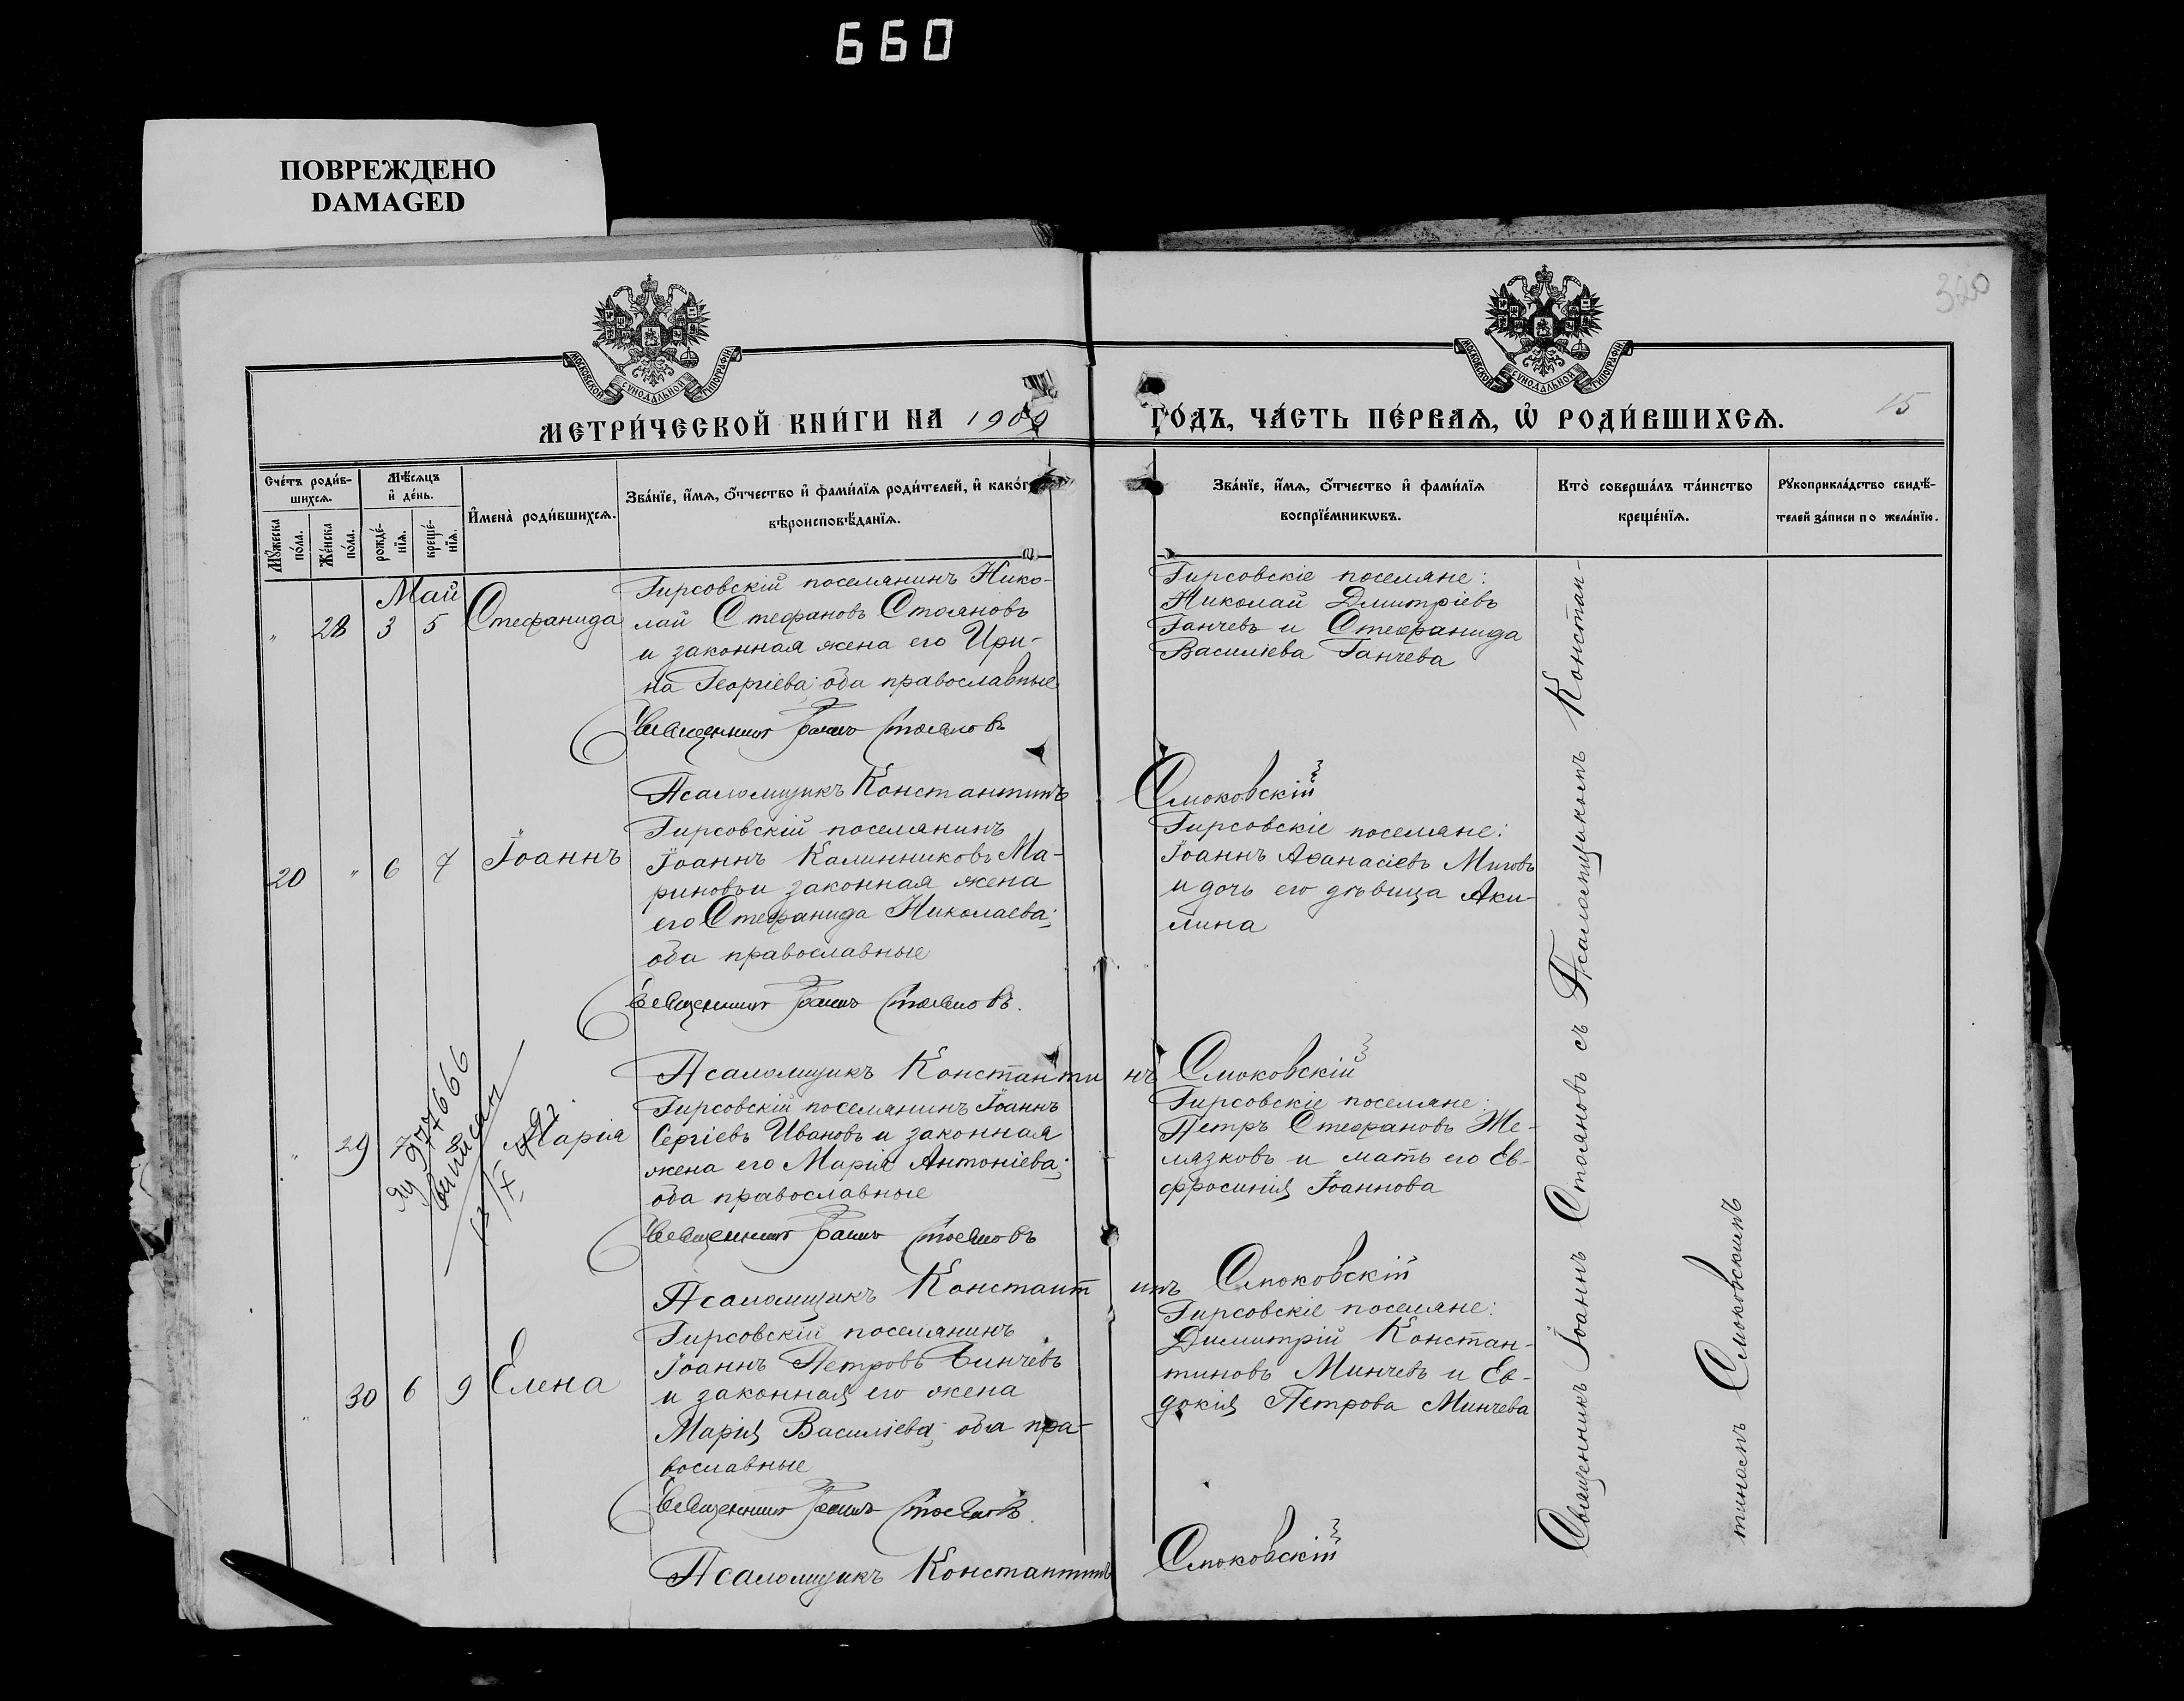 660
ПОВРЕЖДЕНО
DAMAGED
320
МОСКОВСКОЙ СУНОДАЛЬНОЙ ТИПОГРАФІИ
МОСКОВСКОЙ СУНОДАЛЬНОЙ ТИПОГРАФІИ
МЕТРИ́ЧЕСКОЙ КНИ́ГИ НА 1909
ГО́ДЪ, ЧА́СТЬ ПЕ́РВАѦ, Ѡ҆ РОДИ́ВШИХСѦ.
15
Сче́тъ роди́в-
шихсѧ.
Мѣ́сѧцъ
и҆ де́нь.
Мꙋ́жеска
по́ла.
Же́нска
по́ла.
рожде́-
нїѧ.
креще́-
нїѧ.
И҆мена̀ роди́вшихсѧ.
Зва́нїе, и҆́мѧ, ѻ҆́тчество и҆ фами́лїѧ роди́телей, и҆ како́гѡ
вѣроисповѣ́данїѧ.
Зва́нїе, и҆́мѧ, ѻ҆́тчество и҆ фами́лїѧ
воспрїе́мникѡвъ.
Кто̀ соверша́лъ та́инство
креще́нїѧ.
Рꙋкоприкла́дство свидѣ́-
телей за́писи по жела́нїю.
Май
" 28 3 5 Стефанида
Гирсовскій поселянинъ Нико-
лай Стефановъ Стояновъ
и законная жена его Ири-
на Георгіева; оба православные
Священникъ Іоаннъ Стояновъ
Псаломщикъ Константинъ Смоковскій
Гирсовскіе поселяне:
Николай Дмитріевъ
Ганчевъ и Стефанида
Василіева Ганчева
20 " 6 7 Іоаннъ
Гирсовскій поселянинъ
Іоаннъ Калинниковъ Ма-
риновъ и законная жена
его Стефанида Николаева;
оба православные
Священникъ Іоаннъ Стояновъ.
Псаломщикъ Константинъ Смоковскій
Гирсовскіе поселяне:
Іоаннъ Афанасіевъ Митовъ
и дочь его дѣвица Аки-
лина
" 29 Марія
977666
Гирсовскій поселянинъ Іоаннъ
Сергіевъ Ивановъ и законная
жена его Марія Антоніева;
оба православные
Священникъ Іоаннъ Стояновъ
Псаломщикъ Константинъ Смоковскій
Гирсовскіе поселяне:
Петръ Стефановъ Же-
лязковъ и мать его Ев-
фросинія Іоаннова
" 30 6 9 Елена
Гирсовскій поселянинъ
Іоаннъ Петровъ Бинчевъ
и законная его жена
Марія Василіева; оба пра-
вославные
Священникъ Іоаннъ Стояновъ.
Псаломщикъ Константинъ Смоковскій
Гирсовскіе поселяне:
Димитрій Констан-
тиновъ Минчевъ и Ев-
докія Петрова Минчева
Священникъ Іоаннъ Стояновъ съ Псаломщикомъ Констан-
тиномъ Смоковскимъ